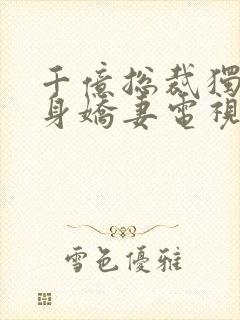 千億总裁獨
身嬌妻電視
雪色優雅